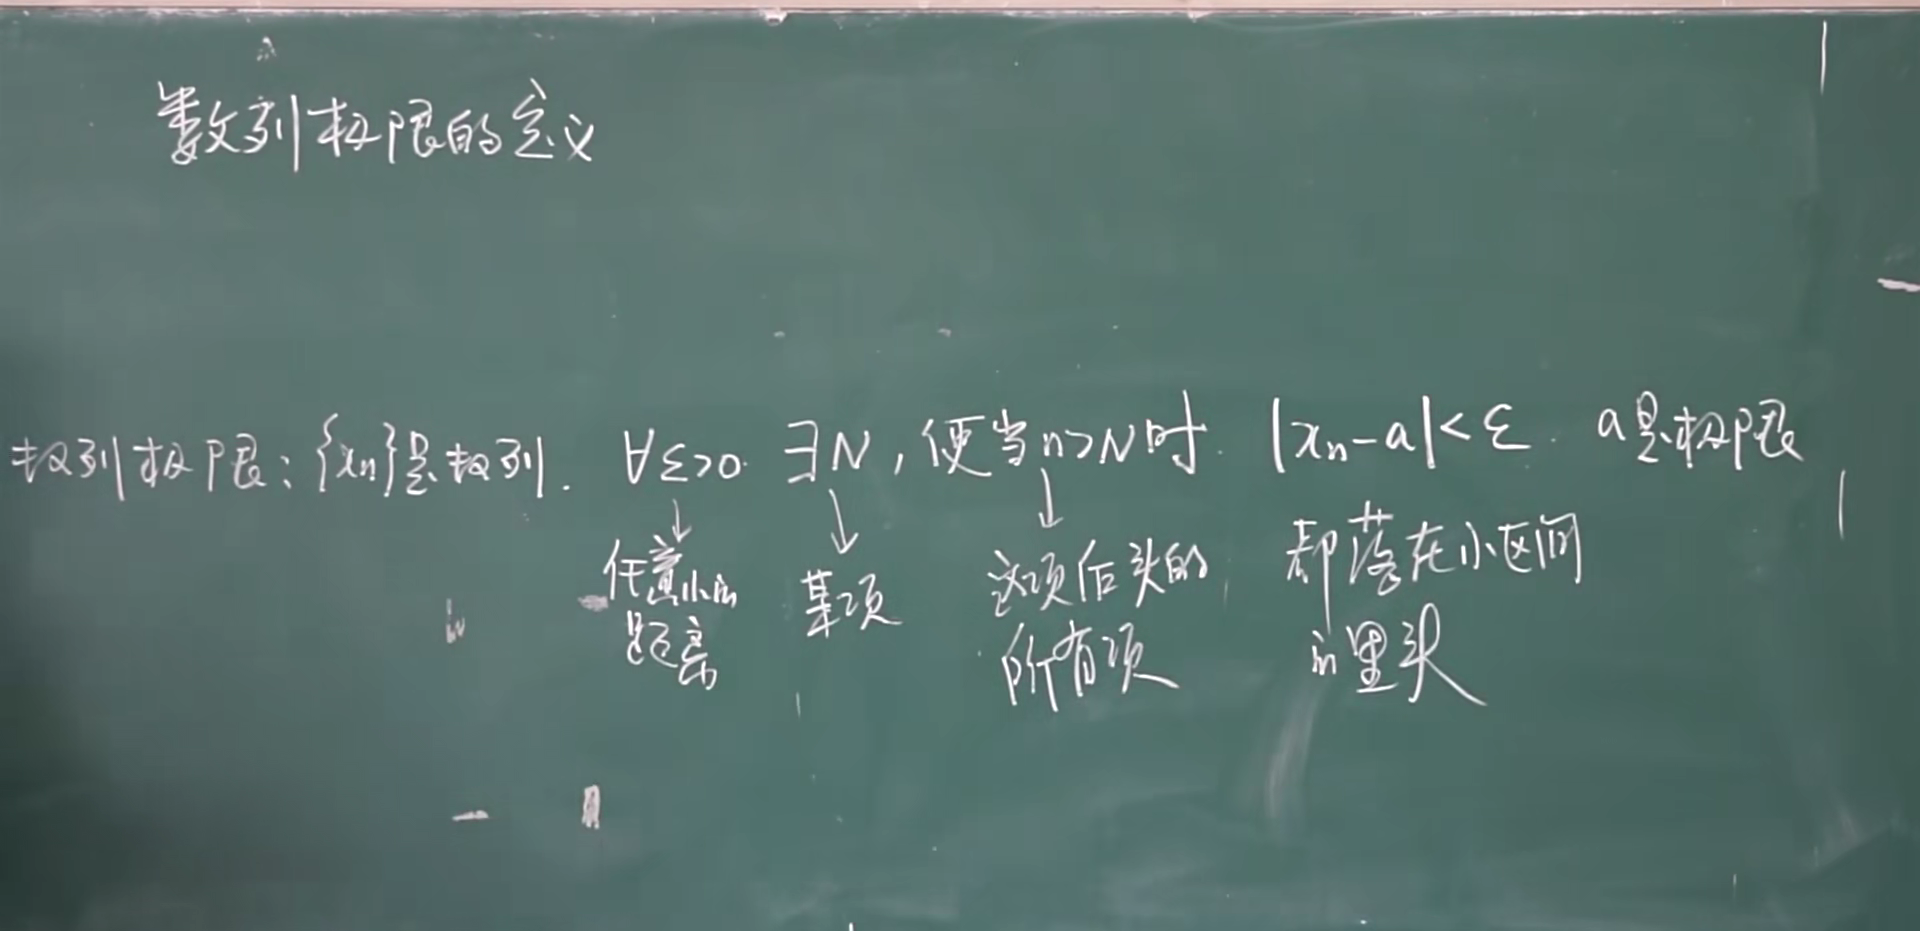 数列极限的定义
数列极限：{xn}是数列． ∀ε>0 ∃N，使当n>N时 |xn-a|<ε． a是极限
↓ ↓ ↓
任意小的 某项 这项后头的 都落在小区间
距离 所有项 的里头